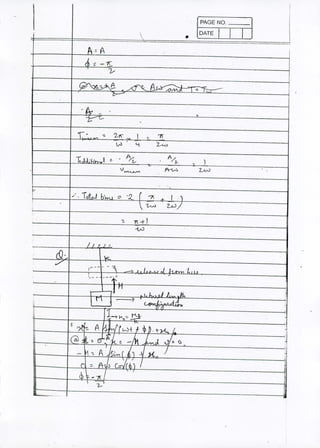 PAGE NO.
DATE
A = A
ϕ = -π/2
A/2
= 2π/ω × 1/4 = π/2ω
Additional = A/2 / Vmean = A/2 / Aω = 1/2ω
∴ Total time = 2 ( π/2ω + 1/2ω )
= π+1 / ω
Q.
K
released from here.
H
M
natural length
configuration
x = A sin(ωt + ϕ) + x₀
@ t = 0, x = -H and v = 0.
-H = A sin(ϕ) + x₀
0 = Aω cos(ϕ)
ϕ = -π/2